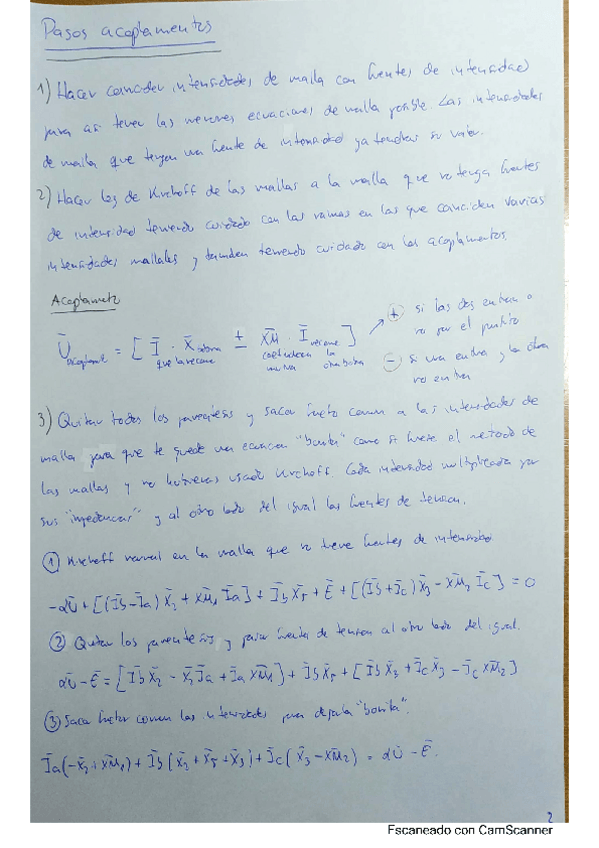 Pasos acoplamentos
1) Hacer coincidir intensidades de malla con fuentes de intensidad
para así tener las menores ecuaciones de malla posible. Las intensidades
de malla que tengan una fuente de intensidad ya tendrás su valor.
2) Hacer ley de Kirchoff de las mallas a la malla que no tenga fuentes
de intensidad teniendo cuidado con las ramas en las que coinciden varias
intensidades mallales y también teniendo cuidado con los acoplamentos.
Acoplamento
Ū acoplamt = [ Ī · X̄ bobina ± X̄M · Ī vecina ]
que la recorre mutua la otra bobina
+ si las dos entran o no por el puntito
- si una entra y la otra no entra
3) Quitar todos los parentesis y sacar factor comun a las intensidades de
malla para que te quede una ecuacion "bonita" como si fuese el metodo de
las mallas y no hubieras usado Kirchoff. Cada intensidad multiplicada por
sus "impedancias" y al otro lado del igual las fuentes de tension.
① Kirchoff normal en la malla que no tiene fuentes de intensidad.
-αŪ + [(Īb-Īa) X̄2 + XM̄1 Īa] + Īb X̄5 + Ē + [(Īb+Īc) X̄3 - XM̄2 Īc] = 0
② Quitar los parentesis y pasar fuente de tension al otro lado del igual.
αŪ - Ē = [Īb X̄2 - X̄2 Īa + Īa XM̄1] + Īb X̄5 + [Īb X̄3 + Īc X̄3 - Īc XM̄2]
③ Saca factor comun las intensidades para dejarla "bonita".
Īa(-X̄2 + XM̄1) + Īb(X̄2 + X̄5 + X̄3) + Īc(X̄3 - XM̄2) = αŪ - Ē.
2
Escaneado con CamScanner